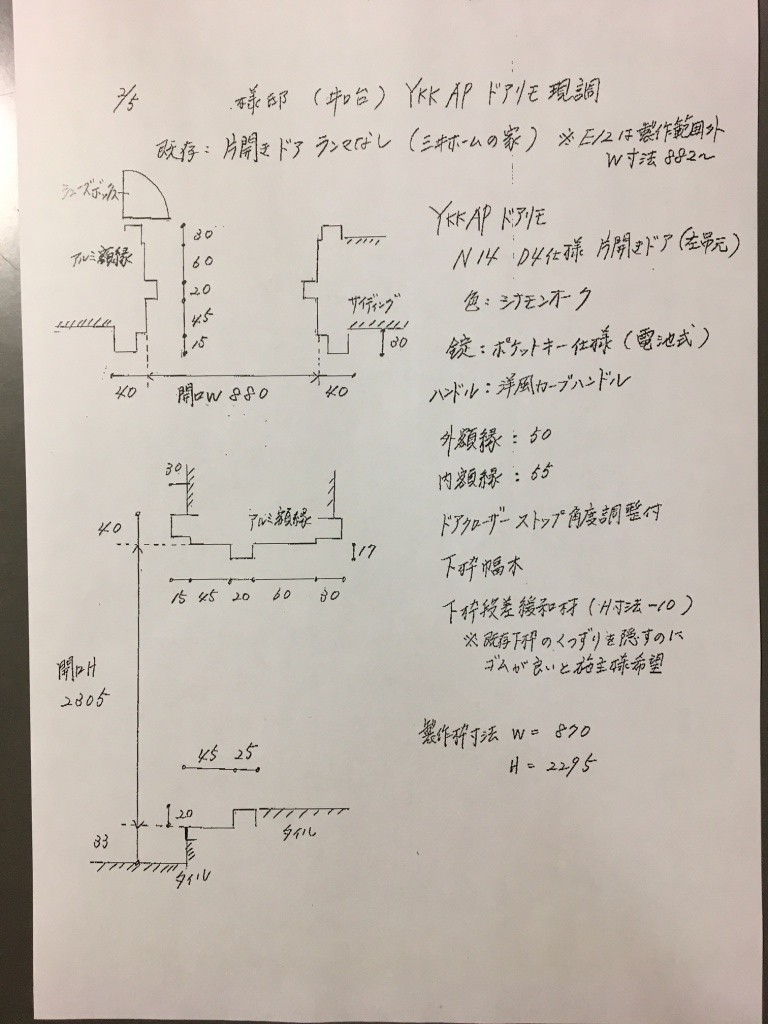 2/5 様邸 (井口台) YKK AP ドアリモ 現調
既存: 片開きドア ランマなし (三井ホームの家) ※E12は製作範囲外
W寸法 882～
シューズボックス
アルミ額縁
30
60
20
45
15
サイディング
30
40
開口W 880
40
YKK AP ドアリモ
N14 D4仕様 片開きドア (左吊元)
色: シナモンオーク
錠: ポケットキー仕様 (電池式)
ハンドル: 洋風カーブハンドル
外額縁: 50
内額縁: 55
ドアクローザー ストップ角度調整付
下枠幅木
下枠段差緩和材 (H寸法-10)
※既存下枠のくつずりを隠すのに
ゴムが良いと施主様希望
製作枠寸法 W = 870
H = 2295
30
アルミ額縁
40
17
15 45 20 60 30
開口H
2305
45 25
20
33
タイル
タイル